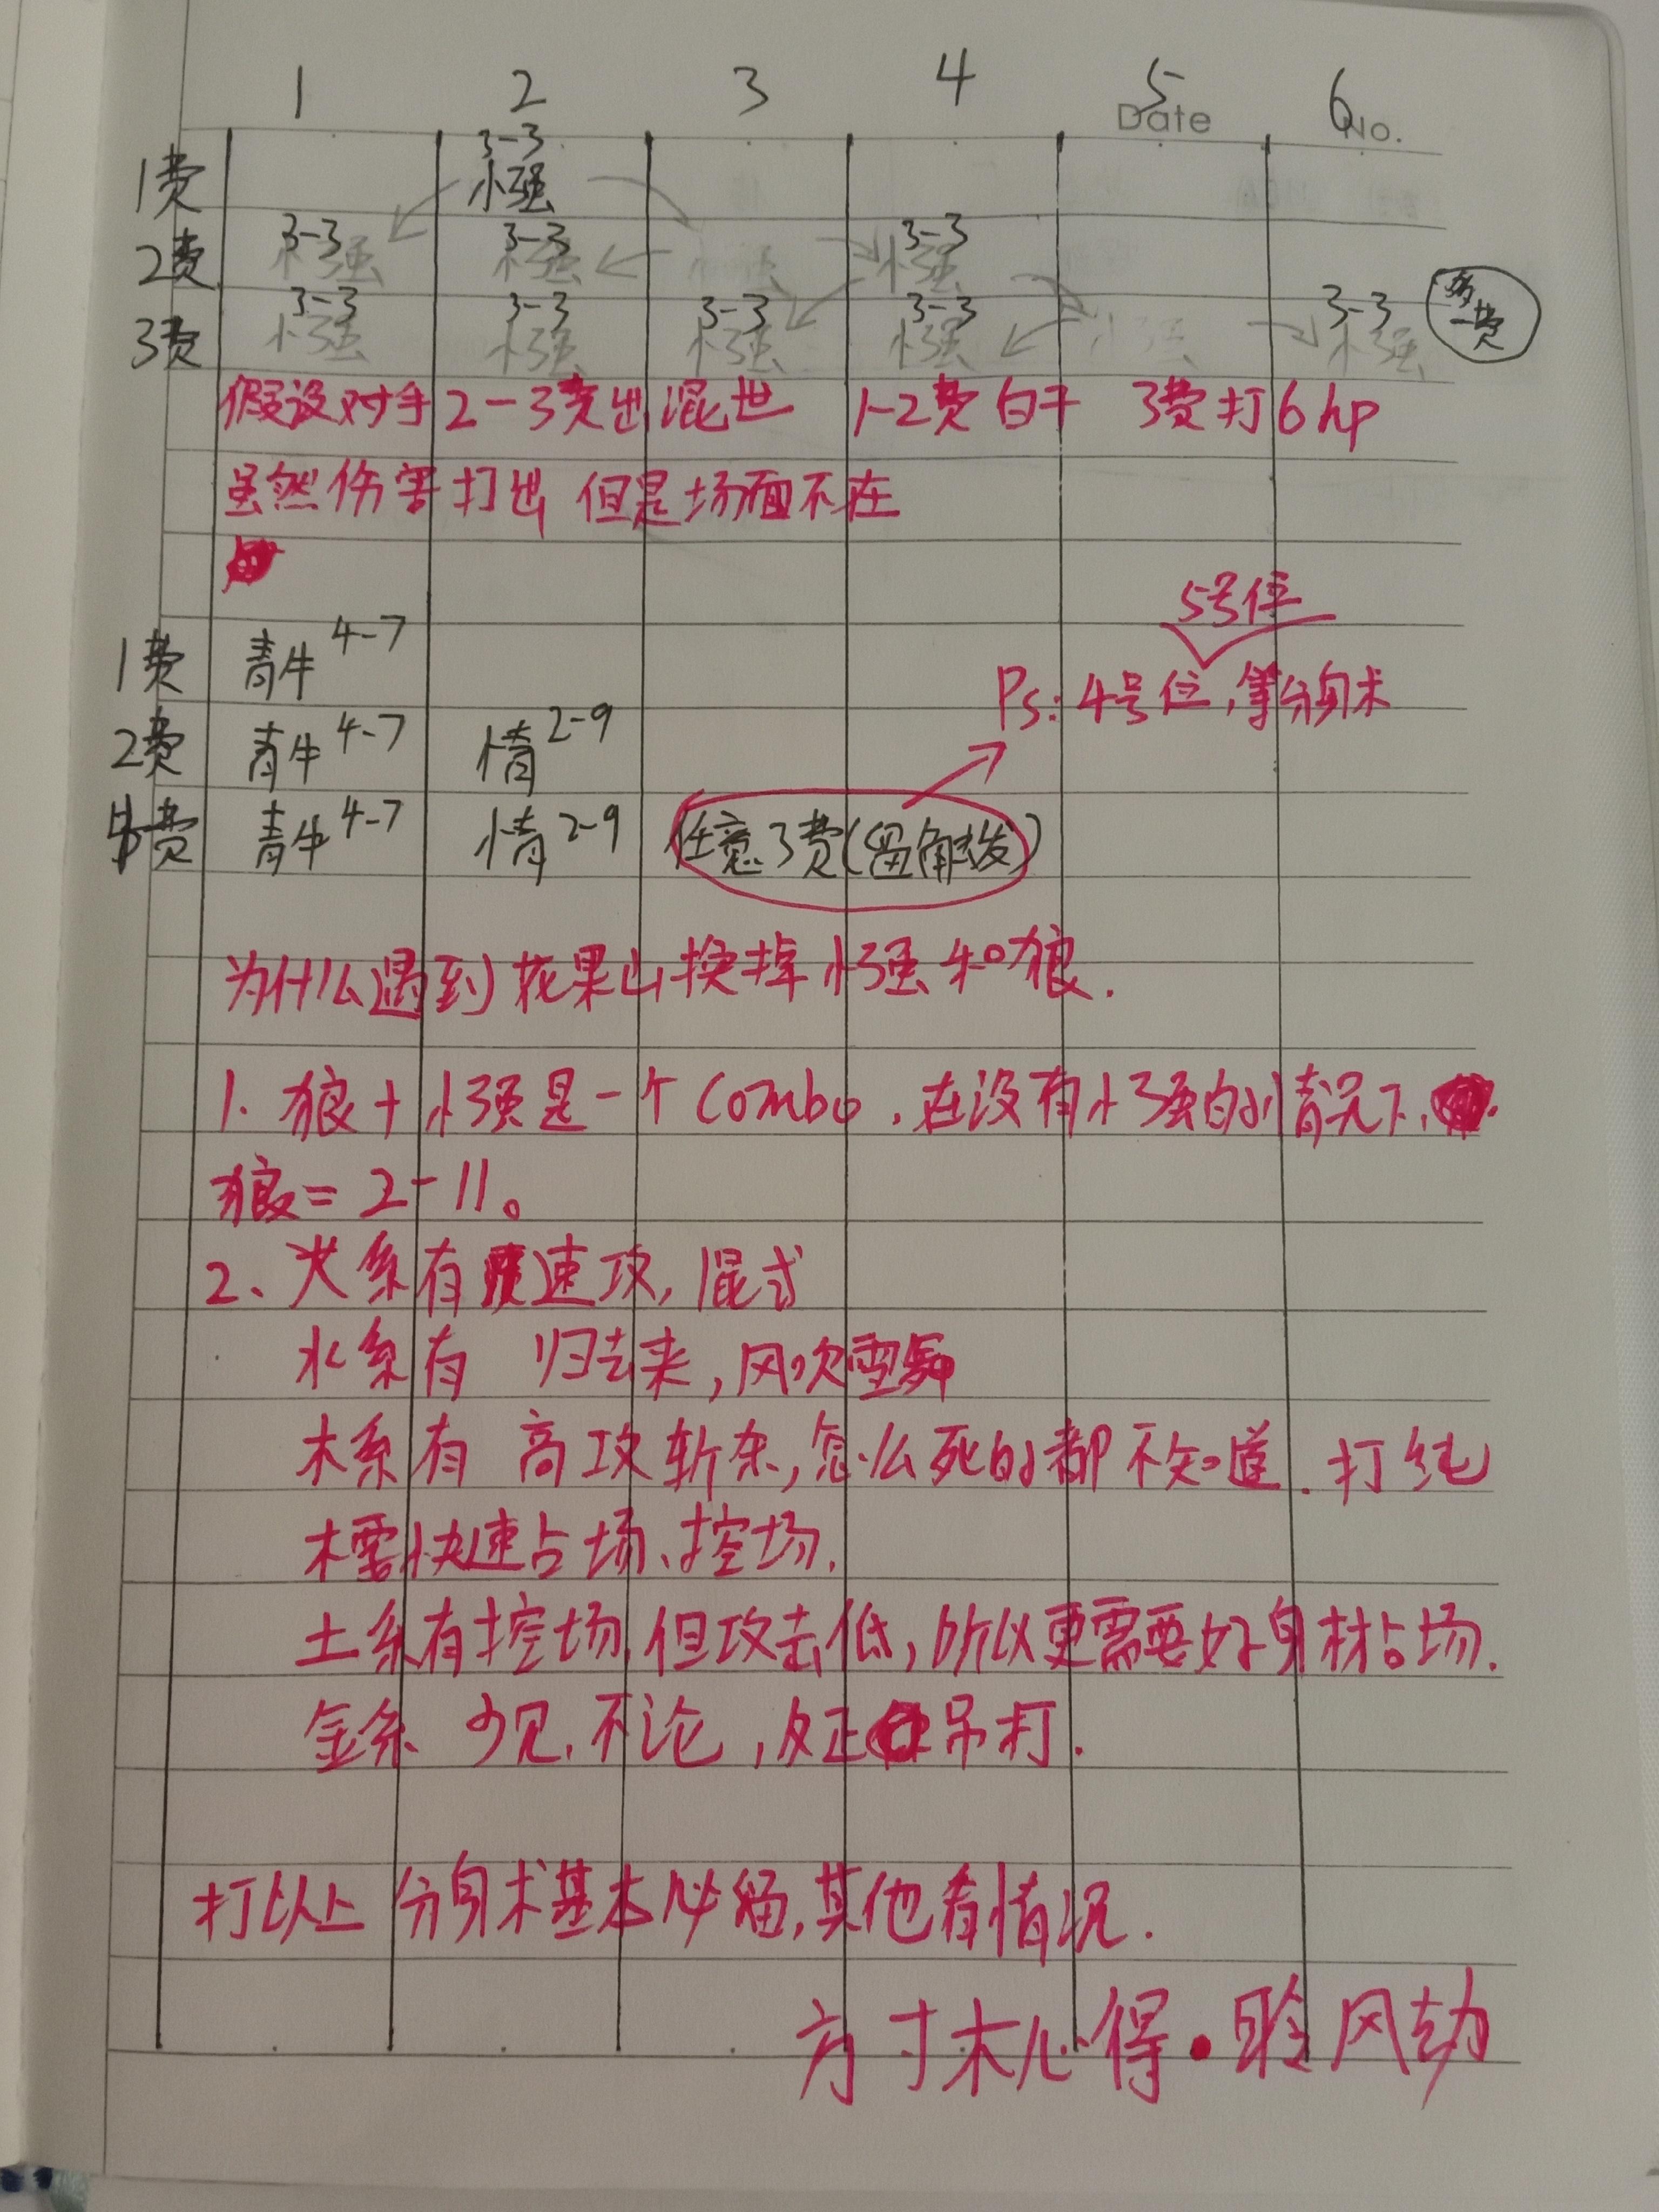 1 2 3 4 5 6
Date No.
3-3
1费 小强
3-3 3-3 3-3
2费 小强 小强 小强 小强
3-3 3-3 3-3 3-3 3-3
3费 小强 小强 小强 小强 小强 小强 一费
假设对手2-3费出混世 1-2费白干 3费打6hp
虽然伤害打出 但是场面不在
5号位
1费 青牛 4-7
Ps: 4号位,等分身术
2费 青牛 4-7 情 2-9
费 青牛 4-7 情 2-9 任意3费(留触发)
为什么遇到花果山换掉小强和狼.
1. 狼+小强是一个Combo,在没有小强的情况下,
狼=2-11。
2、火系有速攻,混式
水系有 归去来,风吹雪舞
木系有 高攻斩杀,怎么死的都不知道.打纯
木需快速占场、控场.
土系有控场,但攻击低,所以更需要好身材占场.
金系 少见,不论,反正吊打.
打以上 分身术基本必留,其他看情况.
方寸木心得·聆风劫